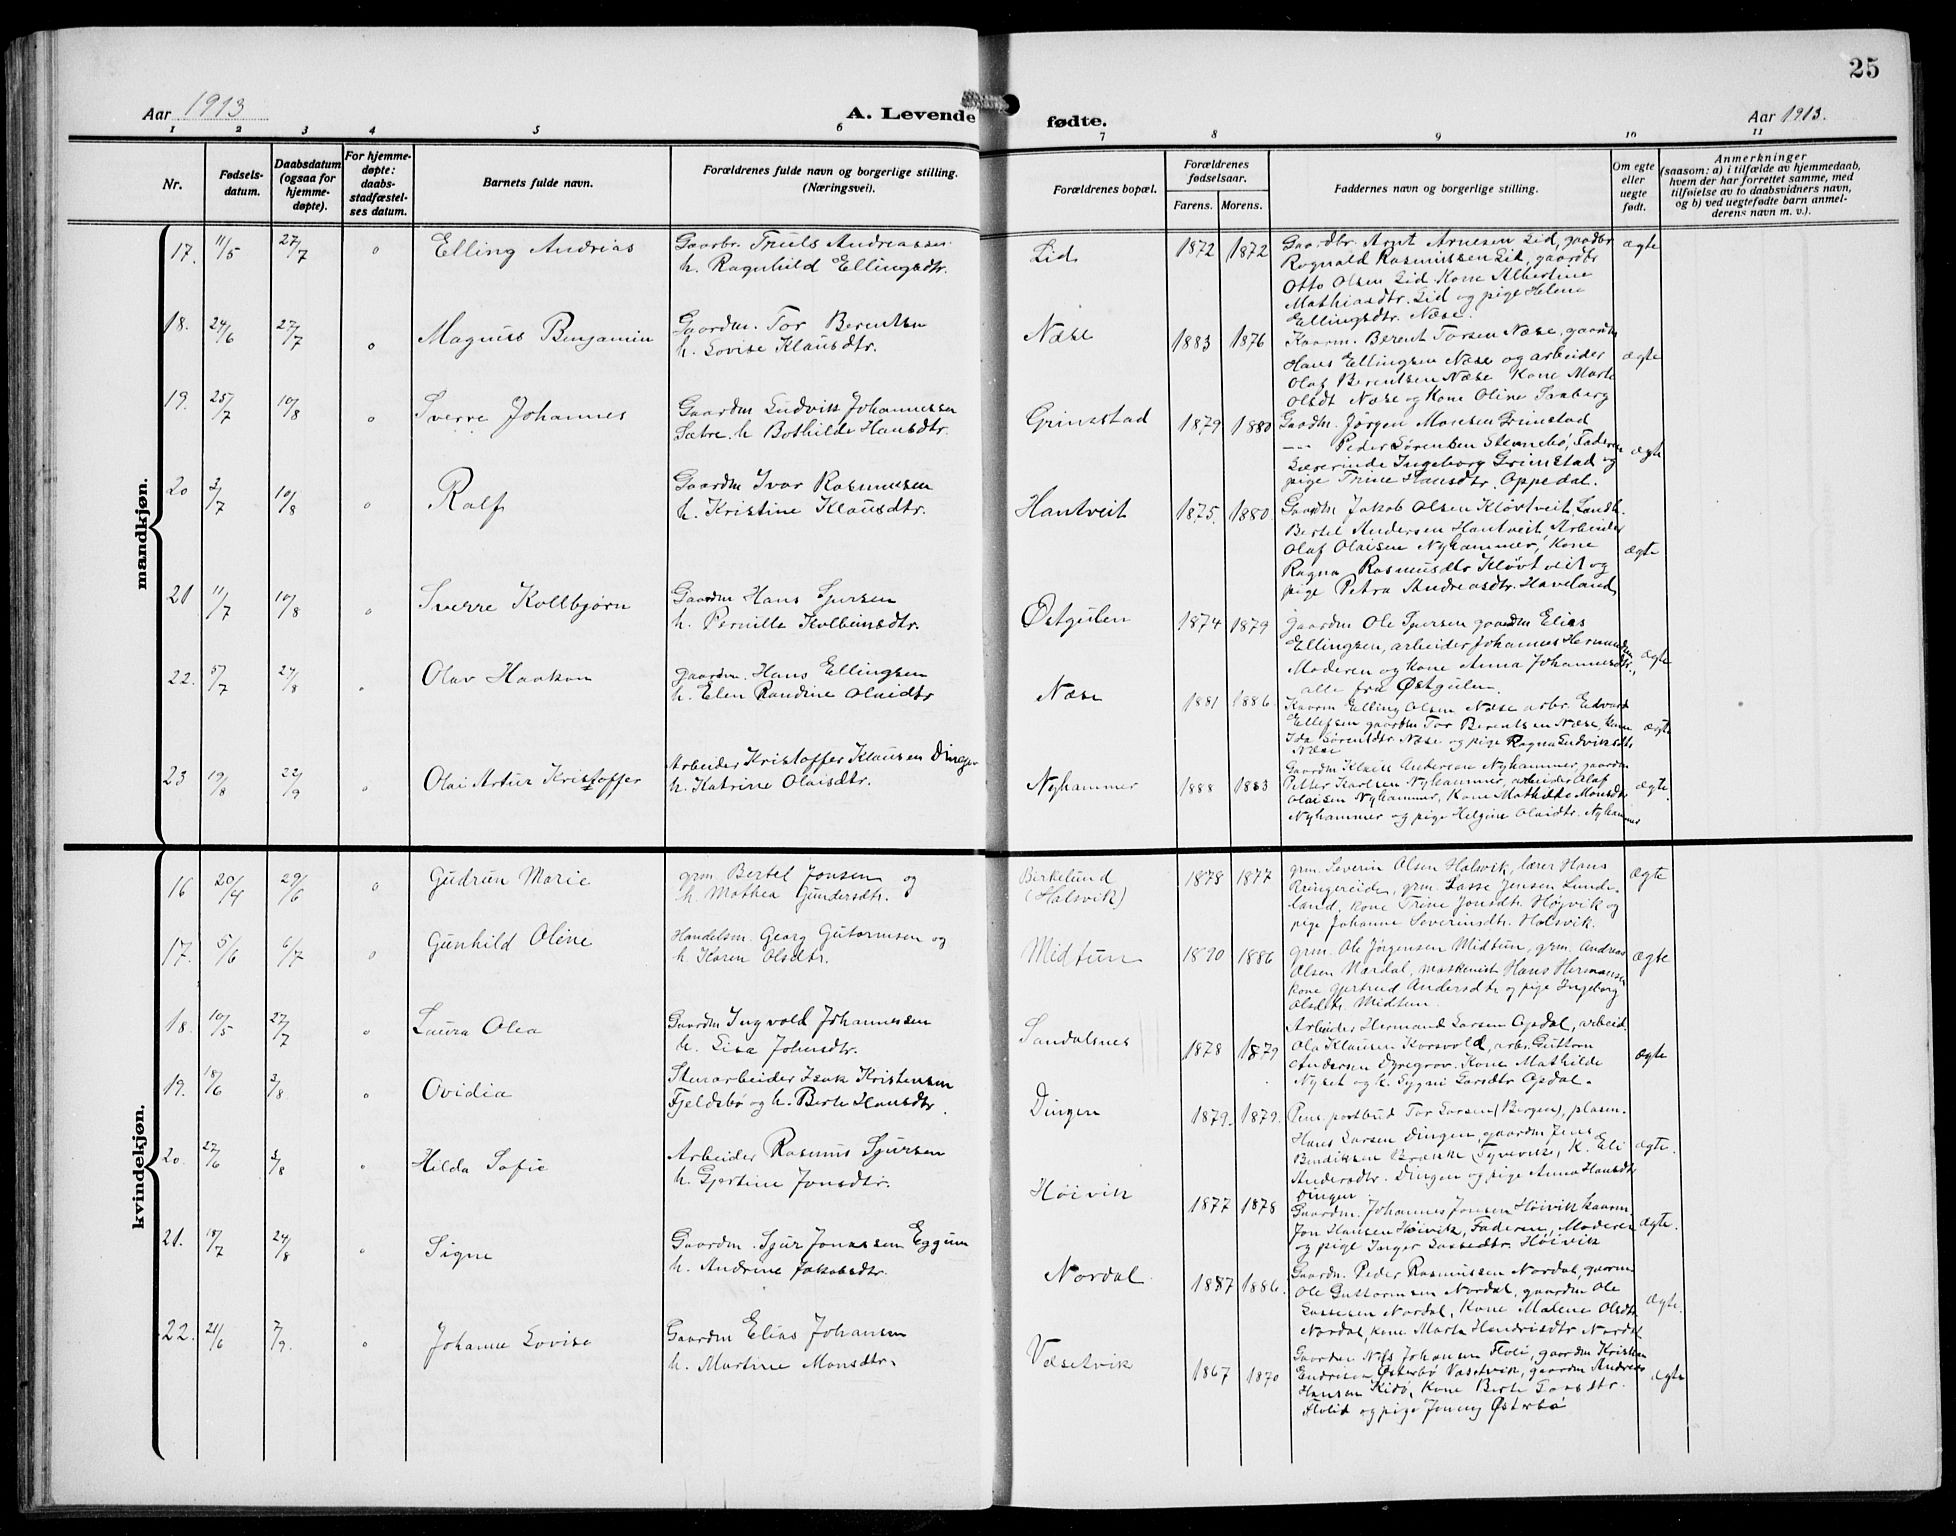 25
Aar 1913
A. Levende fødte.
Aar 1913.
1 2 3 4 5 6 7 8 9 10 11
Nr.
Fødsels-
datum.
Daabsdatum
(ogsaa for
hjemme-
døpte).
For hjemme-
døpte:
daabs-
stadfæstel-
ses datum.
Barnets fulde navn.
Forældrenes fulde navn og borgerlige stilling.
(Næringsvei).
Forældrenes bopæl.
Forældrenes
fødselsaar.
Farens. Morens.
Faddernes navn og borgerlige stilling.
Om egte
eller
uegte
født.
Anmerkninger
(saasom: a) i tilfælde av hjemmedaab,
hvem der har forrettet samme, med
tilføielse av to daabsvidners navn,
og b) ved uegtefødte barn anmel-
derens navn m. v.).
mandkjøn.
17. 11/5 27/7 0 Elling Andreas
Gaardbr. Truls Andreassen
h. Ragnhild Ellingsdtr.
Lid 1872 1872
Gaardbr. Arnt Arnesen Lid, gaardbr
Rognald Rasmussen Lid, gaardbr
Otto Olsen Lid Kone Albertine
Mathiasdtr. Lid og pige Helene
Ellingsdtr. Næse.
ægte
18. 24/6 27/7 0 Magnus Benjamin
Gaardm. Tor Berentsen
h. Lovise Klausdtr.
Næse 1883 1876
Kaarm. Berent Torsen Næse, gaardm
Hans Ellingsen Næse og arbeider
Olaf Berentsen Næse Kone Marte
Olsdt Næse og Kone Oline
ægte
19. 25/7 10/8 0 Sverre Johannes
Gaardm Ludvik Johannessen
Sætre. h Bothilde Hansdtr.
Grinestad 1879 1880
Gaardm. Jørgen Monsen Grinestad
— Peder Sørensen Stennebø, Faderen
Lærerinde Ingeborg Grimstad og
pige Trine Hansdtr. Oppedal.
ægte
20 3/7 10/8 0 Ralf
Gaardm Ivar Rasmussen
h. Kristine Klausdtr.
Hantveit 1875. 1880
Gaardm Jakob Olsen Kløvtveit, Landh.
Bertel Andersen Hantveit Arbeider
Olaf Olaisen Nyhammer, Kone
Ragna Rasmusdtr Kløvtveit og
pige Petra Andreasdtr. Haveland
ægte
21 11/7 10/8 0 Sverre Kollbjørn
Gaardm Hans Sjursen
h. Pernille Kolbeinsdtr.
Østgulen 1874 1879
gaardm Ole Sjursen gaardm Elias
Ellingsen, arbeider Johannes
Moderen og Kone Anna Johannesdtr,
alle fra Østgulen.
ægte
22. 5/7 24/8 0 Olav Haakon
gaardm. Hans Ellingsen
h. Elen Randine Olaidtr
Næse 1881 1886
Kaarm Elling Olsen Næse arbr. Edvard
Ellefsen gaardm Tor Berentsen Næse, Kone
Ida Sørensdtr Næse og pige Ragna Ludviksdtr
Næse
ægte
23 19/8 22/9 0 Olai Artur Kristoffer
Arbeider Kristoffer Klausen Dingen
h. Katrine Olaisdtr.
Nyhammer 1888 1883
Gaardm Klaus Andersen Nyhammer, gaardm
Petter Karlsen Nyhammer, arbeider Olaf
Olaisen Nyhammer, Kone Mathilde Monsdtr
Nyhammer og pige Helgine Olaidtr. Nyhammer
ægte.
kvindekjøn.
16 20/4 29/6 0 Gudrun Marie
grm. Bertel Jonsen og
h. Mathea Gundersdtr.
Birkelund
(Halsvik) 1878 1877
grm. Severin Olsen Halsvik, lærer Hans
Ringereide, grm. Lasse Jensen Lunde-
land, kone Trine Jonsdtr. Højvik og
pige Johanne Severinsdtr. Halsvik.
ægte
17. 5/6 6/7 0 Gunhild Oline
Handelsm. Georg Gutormsen og
h Karen Olsdtr.
Midtun 1890 1886
grm. Ole Jørgensen Midtun, grm. Andreas
Olsen Nærdal, maskenist Hans Hermansen
kone Gjertrud Andersdtr og pige Ingeborg
Olsdtr. Midtun.
ægte
18. 10/5 27/7 0 Laura Olea
Gaardm Ingvold Johannessen
h. Lisa Johnsdtr.
Sandalsnes 1878 1879
Arbeider Hermand Larsen Opdal, arbeid.
Ola Klausen Korsvold, arb. Guttorm
Andersen Dyregrov. Kone Mathilde
Nyset og h. Sygni Larsdtr Opdal.
ægte
19. 18/6 3/8 0 Ovidia
Stenarbeider Isak Kristensen
Fjeldsbø og h. Berte Hansdtr.
Dingen 1879. 1879.
Pens. postbud Tor Larsen (Bergen), plasm.
Hans Larsen Dingen, gaardm Jens
Bendiksen Brække Tyvevik, K. Eli
Andersdtr. Dingen og pige Anna Hansdtr
Dingen
ægte.
20. 27/6 3/8 0 Hilda Sofie
Arbeider Rasmus Sjursen
h. Gjertine Jonsdtr.
Høivik 1877 1878
Gaardm. Johannes Jonsen Høivik kaarm
Jon Hansen Høivik, Faderen, Moderen
og pige Inger Lassedtr. Høivik
ægte.
21. 18/7 24/8 0 Signe
Gaardm. Sjur Jonassen Eggum
h. Andrine Jakobsdtr.
Nordal. 1887 1886.
Gaardm. Peder Rasmussen Nordal, gaardm
Ole Guttormsen Nordal, gaardm Ole
Lassesen Nordal, Kone Malene Olsdtr
Nordal, kone Marta Hendrisdtr Nordal
ægte.
22. 21/6 7/9. 0 Johanne Lovise
Gaardm Elias Johansen
h. Martine Monsdtr.
Væsetvik 1867 1870
Gaardm Nils Johansen Floli, gaardm Kristian
Endresen Østerbø Væsetvik, gaardm Andreas
Hansen Kidø, Kone Berte Larsdtr.
Flolid og pige Jenny Østerbø
ægte